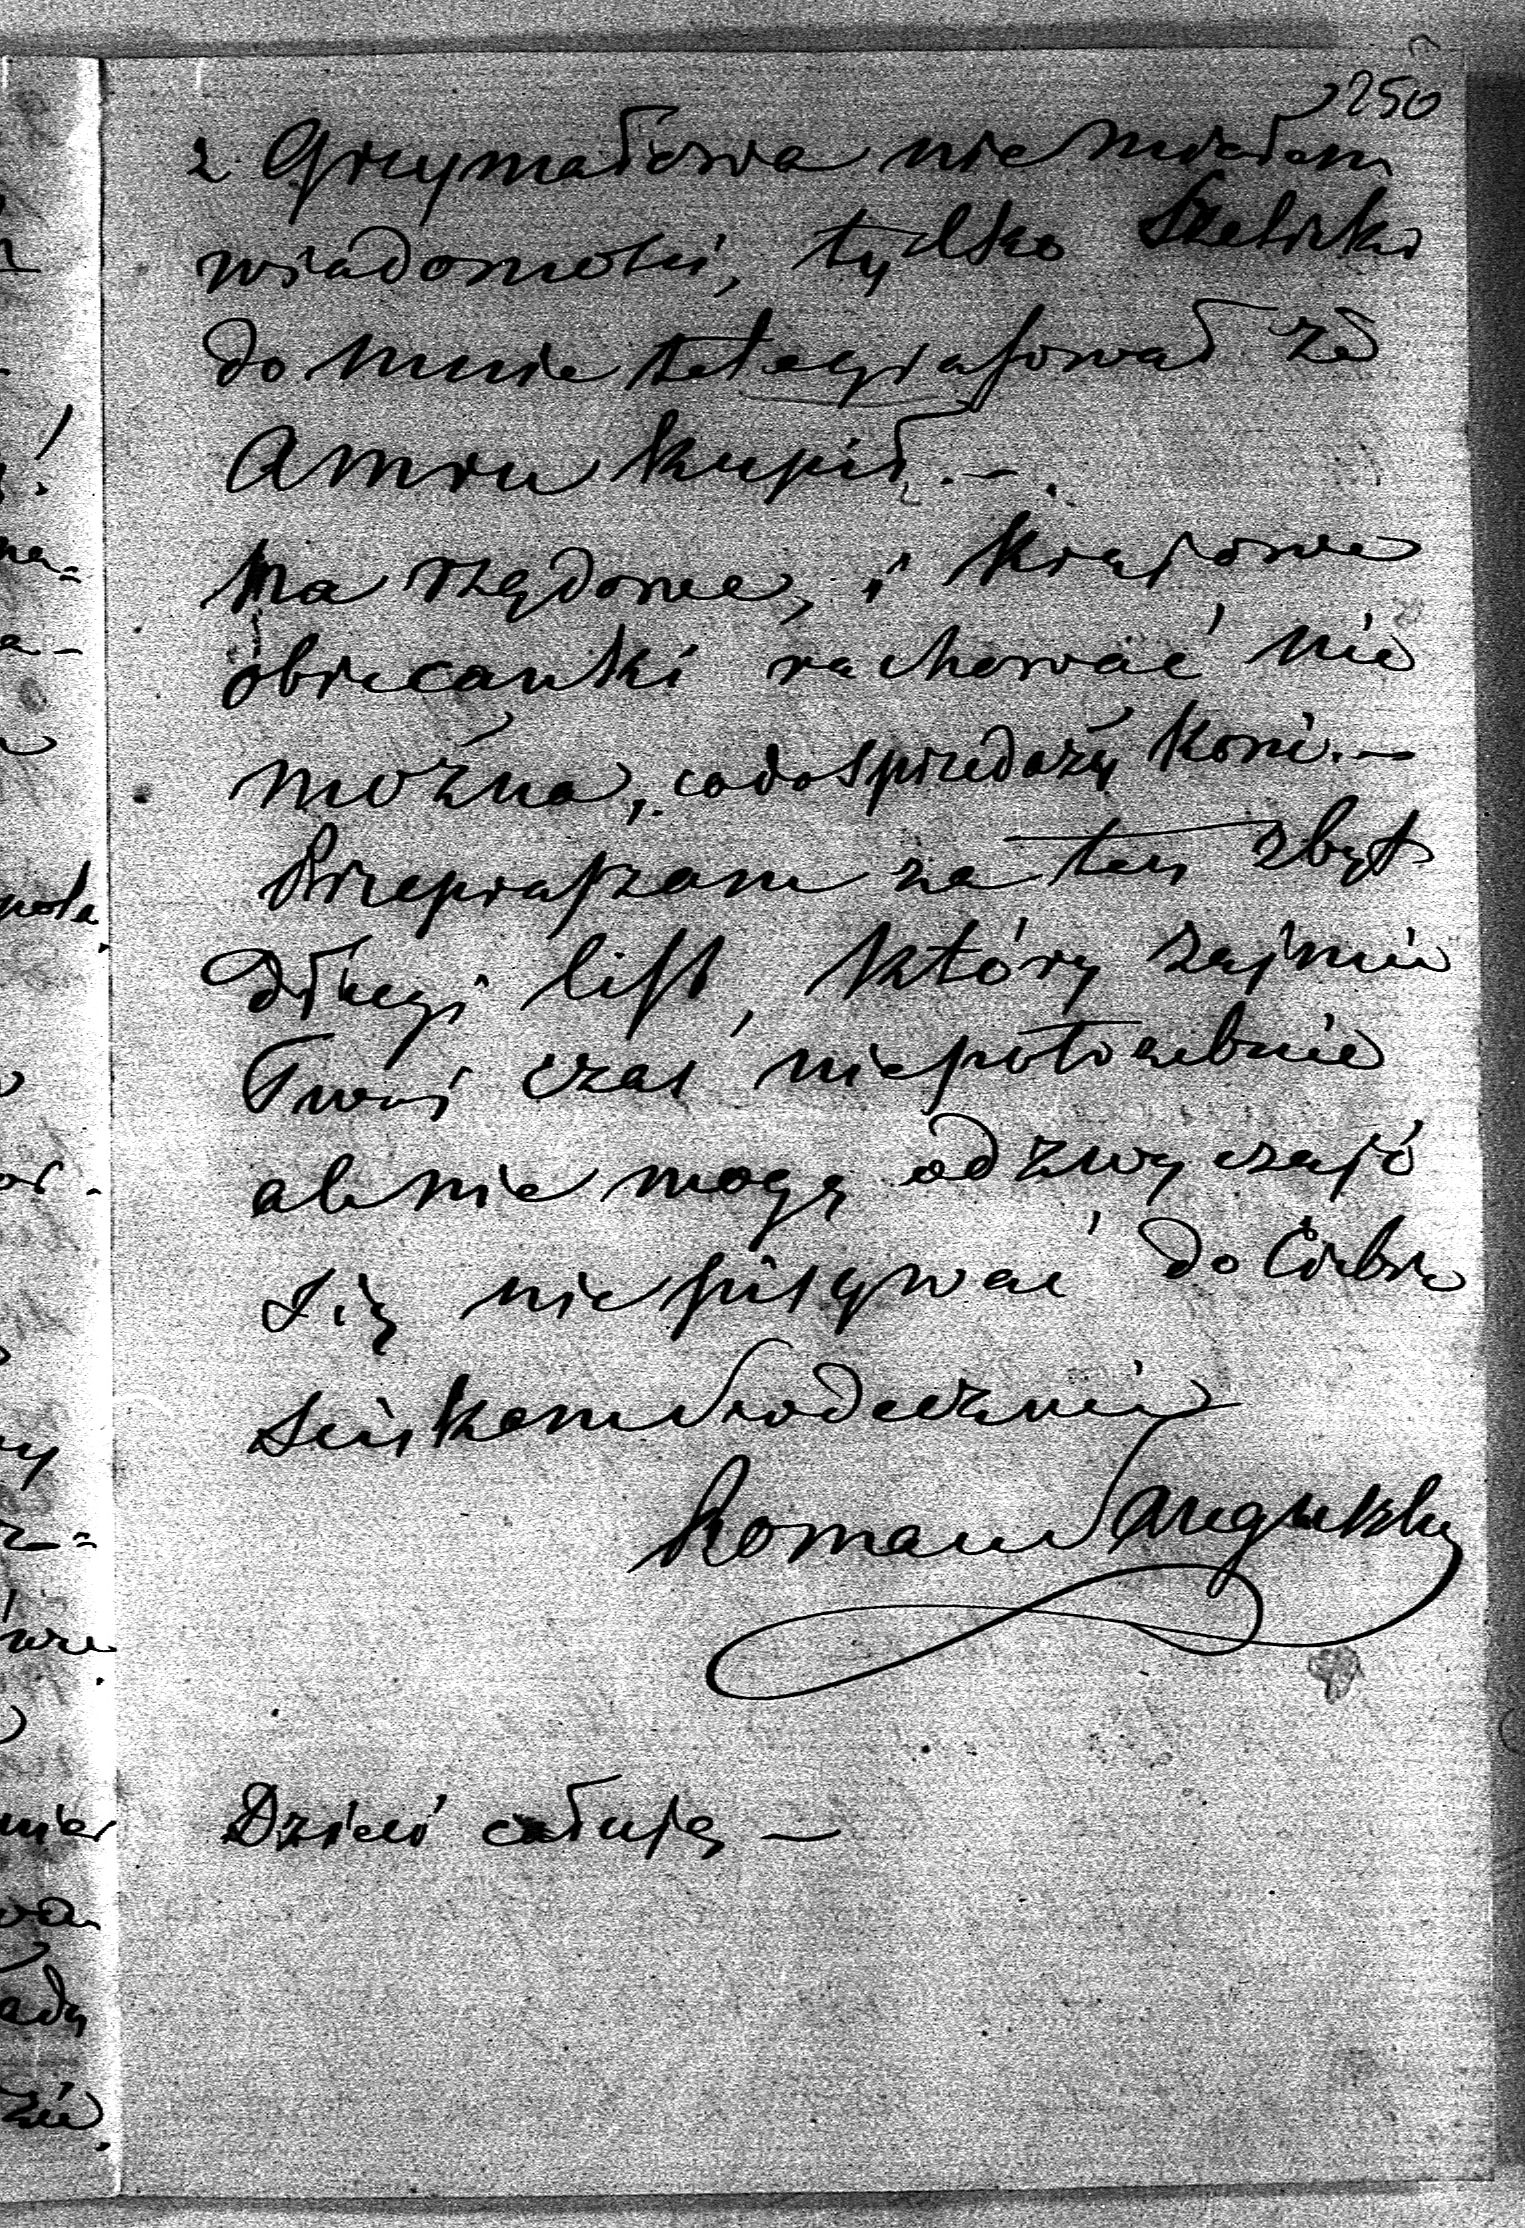 250
z Grzymałowa nie miałem
wiadomości, tylko
do mnie telegrafował że
Amru kupił. —
Na rządowe, i krajowe
obiecanki rachować nie
można, co do sprzedaży koni. —
Przepraszam za ten zbyt
długi list, który zajmie
Twój czas niepotrzebnie
ale nie mogę odzwyczajć
się nie pisywać do Ciebie
ściskam serdecznie
Roman Sanguszko
Dzieci całuję —